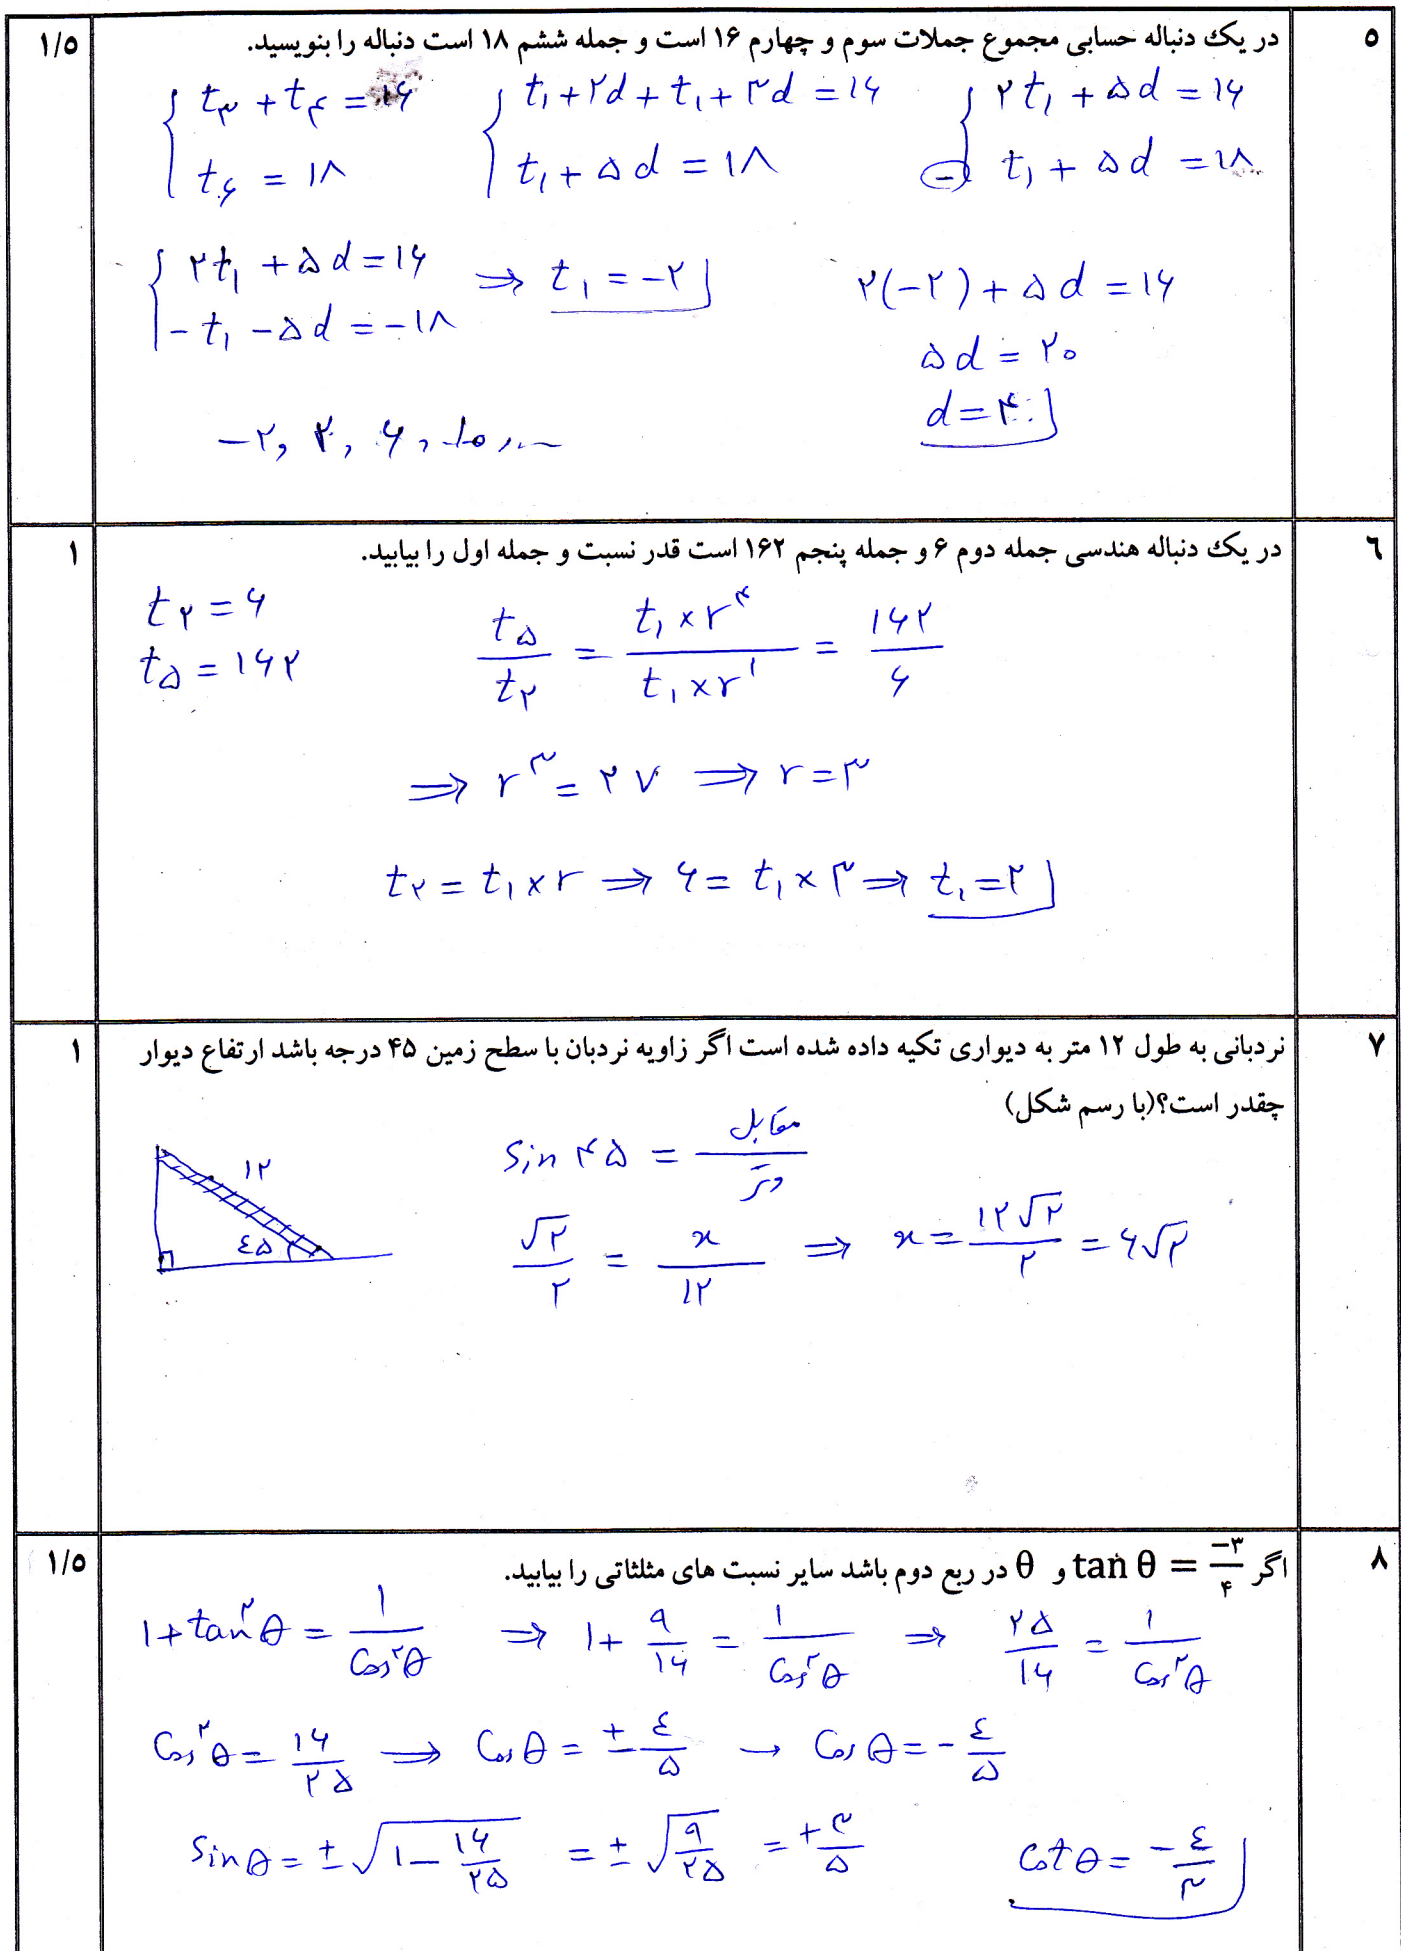 ۵ در یک دنباله حسابی مجموع جملات سوم و چهارم ۱۶ است و جمله ششم ۱۸ است دنباله را بنویسید. ۱/۵
{ t۳ + t۴ = ۱۶ { t۱ + ۲d + t۱ + ۳d = ۱۶ { ۲t۱ + ۵d = ۱۶
t۶ = ۱۸ t۱ + ۵d = ۱۸ (-) t۱ + ۵d = ۱۸
{ ۲t۱ + ۵d = ۱۶ ⇒ t۱ = -۲ ۲(-۲) + ۵d = ۱۶
-t۱ - ۵d = -۱۸
۵d = ۲۰
d = ۴
-۲, ۲, ۶, ۱۰, ...
۶ در یک دنباله هندسی جمله دوم ۶ و جمله پنجم ۱۶۲ است قدر نسبت و جمله اول را بیابید. ۱
t۲ = ۶
t۵ = ۱۶۲ t۵/t۲ = (t۱ × r^۴)/(t۱ × r^۱) = ۱۶۲/۶
⇒ r^۳ = ۲۷ ⇒ r = ۳
t۲ = t۱ × r ⇒ ۶ = t۱ × ۳ ⇒ t۱ = ۲
۷ نردبانی به طول ۱۲ متر به دیواری تکیه داده شده است اگر زاویه نردبان با سطح زمین ۴۵ درجه باشد ارتفاع دیوار ۱
چقدر است؟(با رسم شکل)
Sin ۴۵ = مقابل/وتر
۱۲
٤۵
√۲/۲ = x/۱۲ ⇒ x = ۱۲√۲/۲ = ۶√۲
۸ اگر tan θ = -۳/۴ و θ در ربع دوم باشد سایر نسبت های مثلثاتی را بیابید. ۱/۵
۱ + tan^۲θ = ۱/Cos^۲θ ⇒ ۱ + ۹/۱۶ = ۱/Cos^۲θ ⇒ ۲۵/۱۶ = ۱/Cos^۲θ
Cos^۲θ = ۱۶/۲۵ ⇒ Cosθ = ±٤/۵ → Cosθ = -٤/۵
Sinθ = ±√(۱ - ۱۶/۲۵) = ±√(۹/۲۵) = +۳/۵ Cotθ = -٤/۳